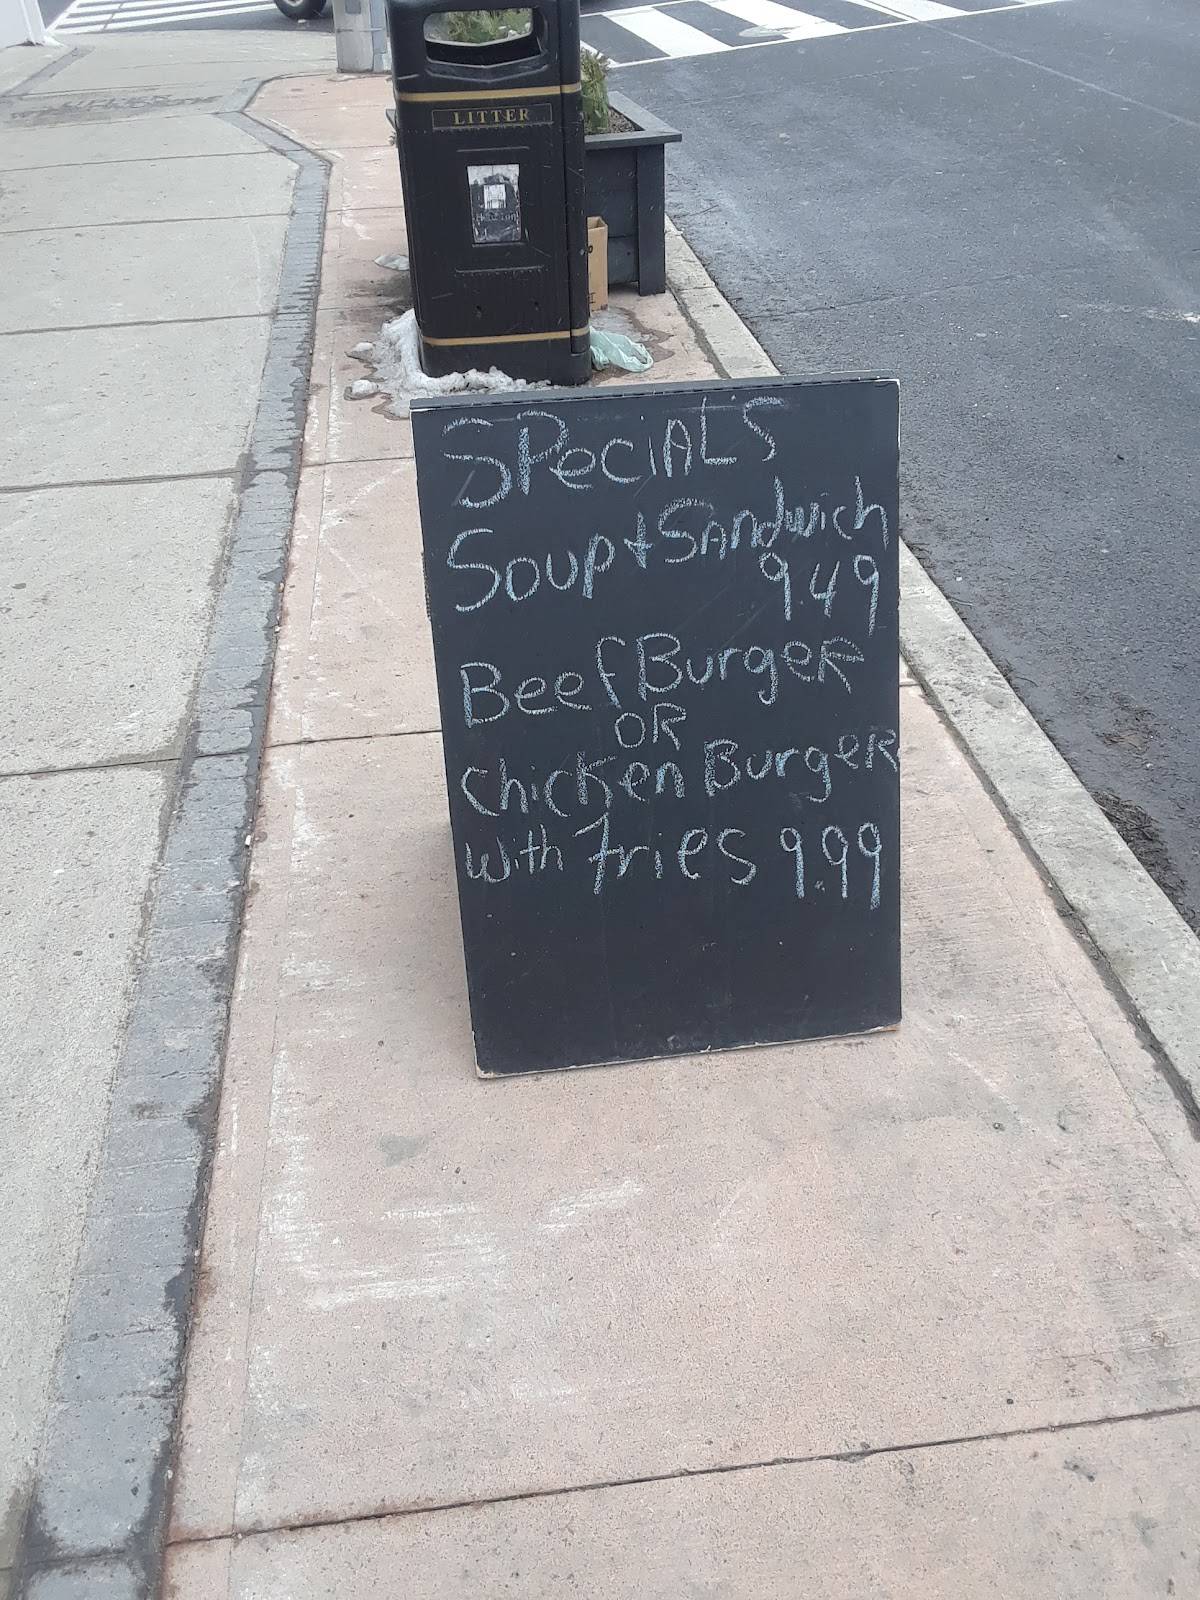 LITTER
SPeciAL'S
Soup + SAndwich
9.49
Beef BurgeR
OR
chicken BurgeR
with fries 9.99